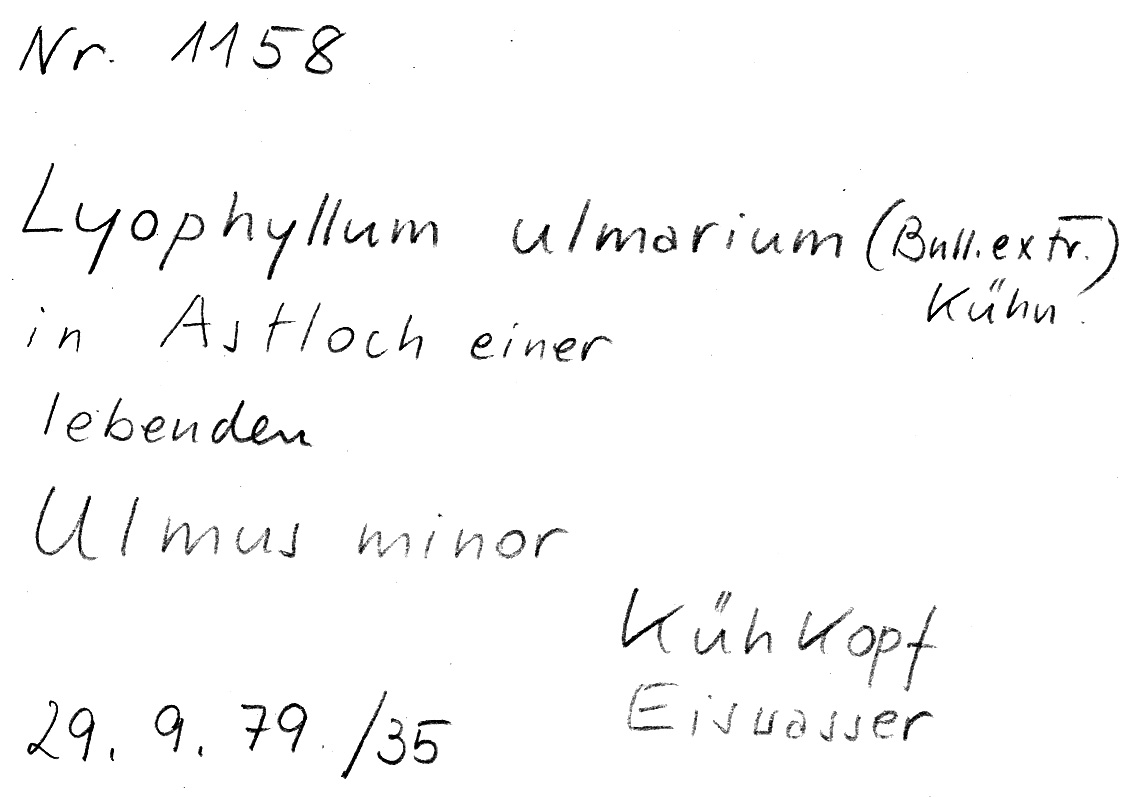 Nr. 1158
Lyophyllum ulmarium (Bull. ex Fr.)
Kühn.
in Astloch einer
lebenden
Ulmus minor
Kühkopf
Eiswasser
29. 9. 79. /35